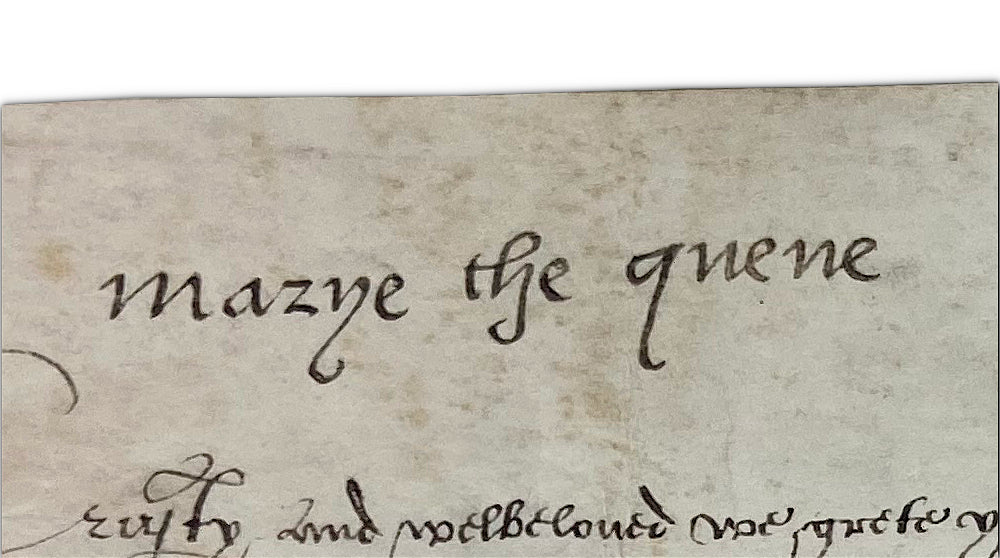 marye the quene
trusty and welbeloued we grete